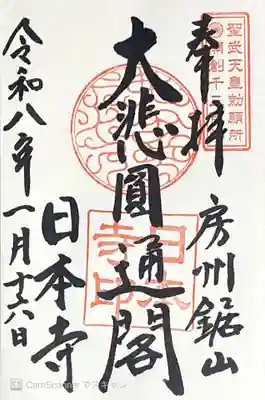 奉拝
房州鋸山
聖武天皇勅願所
大悲圓通閣
日本寺印
令和八年一月十六日
日本寺
CamScanner でスキャン